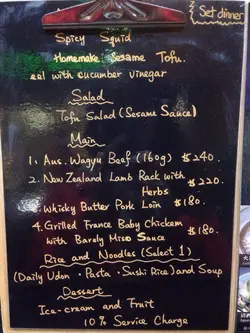 Set dinner
Spicy Squid
Homemake Sesame Tofu.
eel with cucumber vinegar
Salad
Tofu Salad (Sesame Sauce)
Main
1. Aus. Wagyu Beef (160g) $240.
2. New Zealand Lamb Rack with $220.
Herbs
Whisky Butter Pork Loin $180.
4. Grilled France Baby Chickem $180.
with Barely Miso Sauce
Rice and Noodles (Select 1)
(Daily Udon · Pasta · Sushi Rice) and Soup
Dessert
Ice-cream and Fruit
10% Service Charge